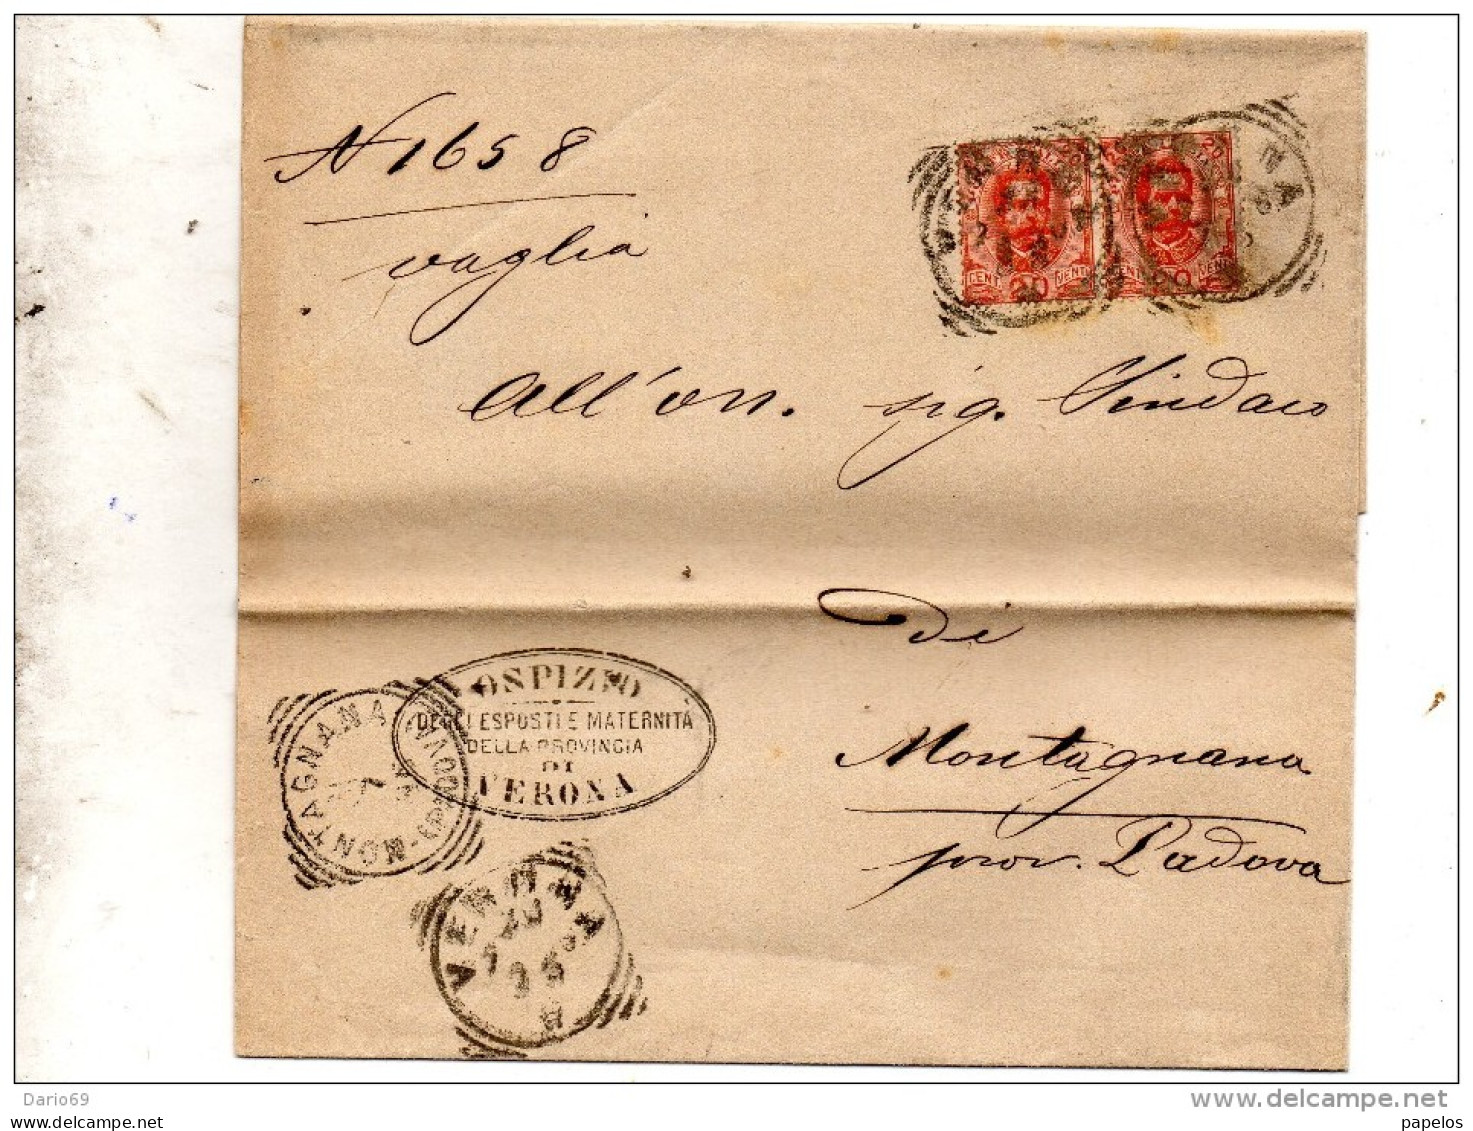 N 1658
vaglia
All'on. sig. Sindaco
di
Montagnana
prov. Padova
20
CENT 20 VENTI
CENT 20 VENTI
OSPIZIO
DEGLI ESPOSTI E MATERNITÀ
DELLA PROVINCIA
DI
VERONA
MONTAGNANA
(PADOVA)
VERONA
VERONA
VERONA
Dario69
www.delcampe.net
papelos